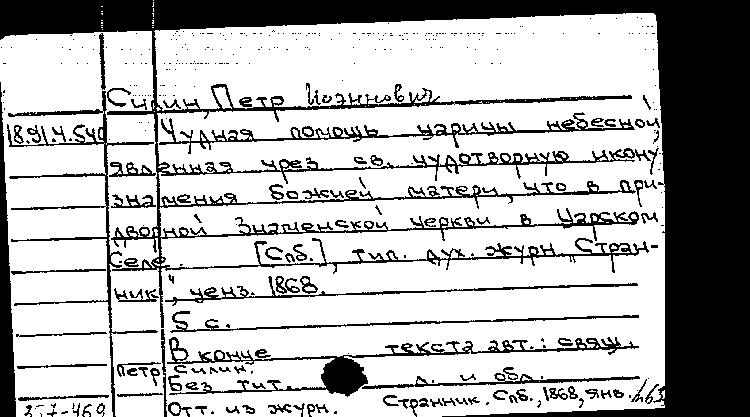 Силин, Петр Иоаннович
18.91.4.540
Чудная помощь царицы небесной,
явленная чрез св. чудотворную икону
знамения божией матери, что в при-
дворной Знаменской церкви в Царском
Селе. [Спб.], тип. дух. журн. „Стран-
ник“, ценз. 1868.
5 с.
В конце текста авт.: свящ.
Петр Силин.
Без тит. л. и обл.
Отт. из журн. Странник. Спб., 1868, янв.